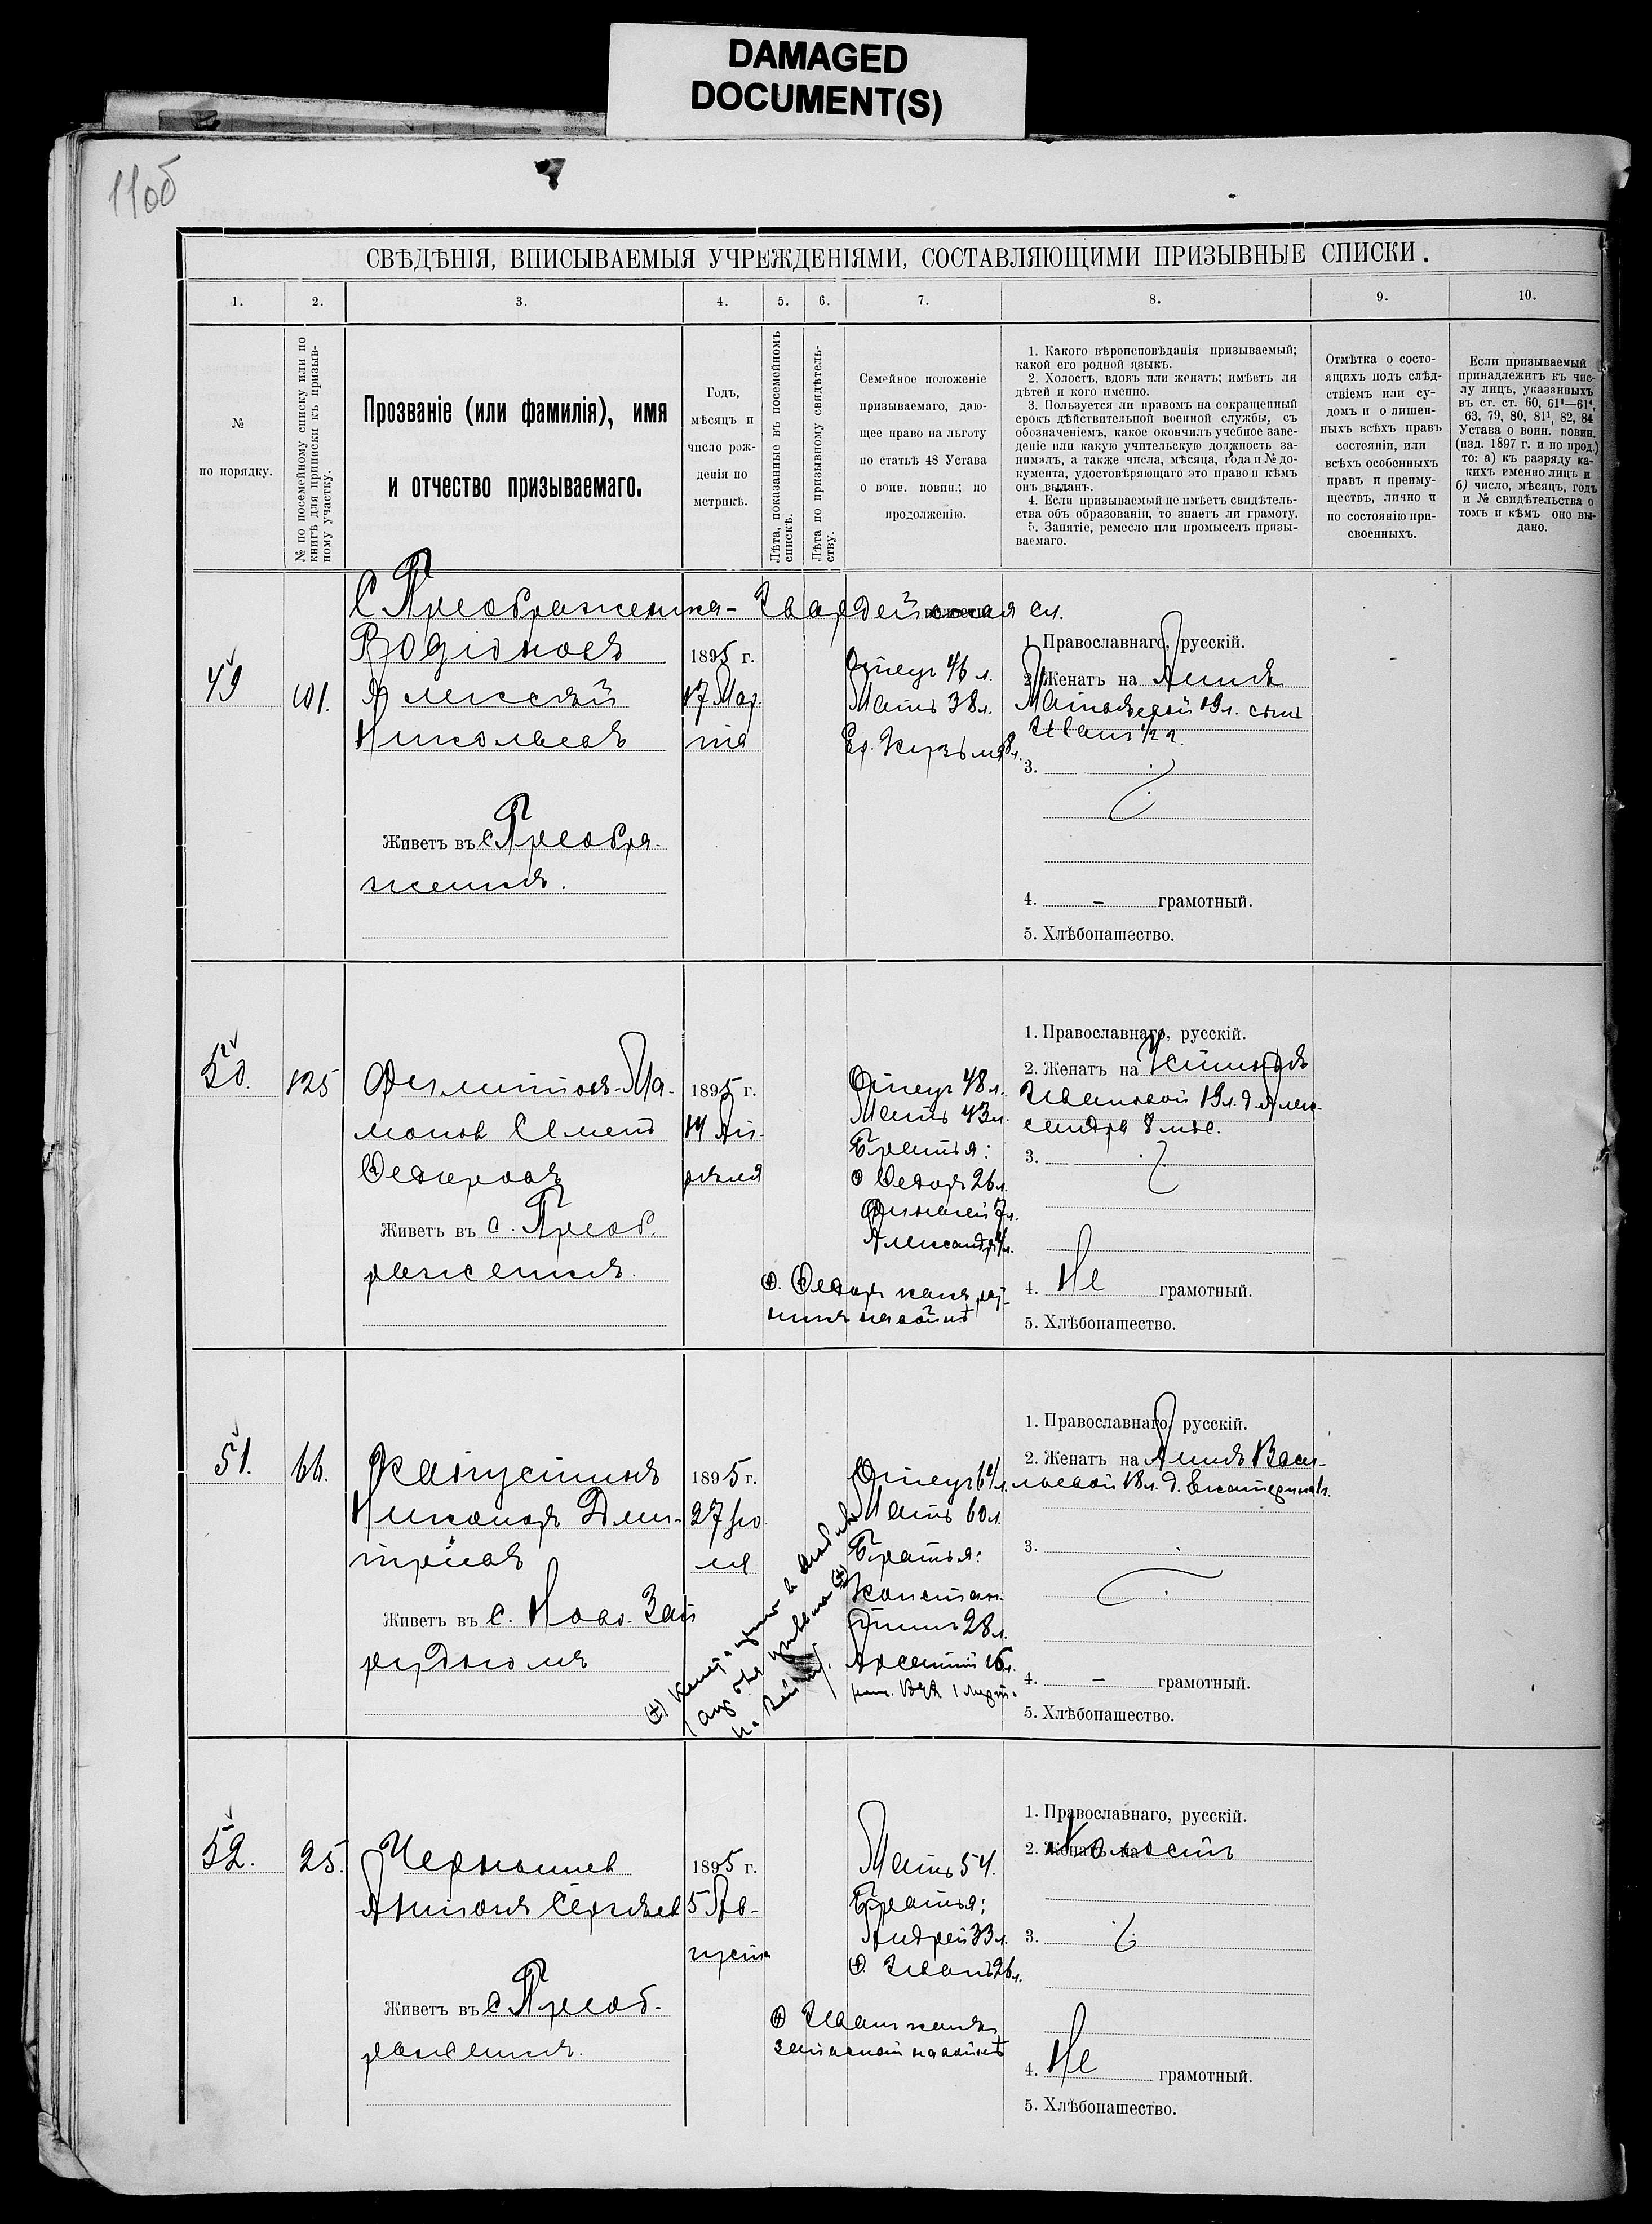 DAMAGED
DOCUMENT(S)
11об
СВѢДѢНІЯ, ВПИСЫВАЕМЫЯ УЧРЕЖДЕНІЯМИ, СОСТАВЛЯЮЩИМИ ПРИЗЫВНЫЕ СПИСКИ.
1. 2. 3. 4. 5. 6. 7. 8. 9. 10.
№
по порядку.
№ по посемейному списку или по
книгѣ для приписки къ призыв-
ному участку.
Прозваніе (или фамилія), имя
и отчество призываемаго.
Годъ,
мѣсяцъ и
число рож-
денія по
метрикѣ.
Лѣта, показанные въ посемейномъ
спискѣ.
Лѣта по призывному свидѣтель-
ству.
Семейное положеніе
призываемаго, даю-
щее право на льготу
по статьѣ 48 Устава
о воин. повин.; по
продолженію.
1. Какого вѣроисповѣданія призываемый;
какой его родной языкъ.
2. Холостъ, вдовъ или женатъ; имѣетъ ли
дѣтей и кого именно.
3. Пользуется ли правомъ на сокращенный
срокъ дѣйствительной военной службы, съ
обозначеніемъ, какое окончилъ учебное заве-
деніе или какую учительскую должность за-
нималъ, а также числа, мѣсяца, года и № до-
кумента, удостовѣряющаго это право и кѣмъ
онъ выданъ.
4. Если призываемый не имѣетъ свидѣтель-
ства объ образованіи, то знаетъ ли грамоту.
5. Занятіе, ремесло или промыселъ призы-
ваемаго.
Отмѣтка о состо-
ящихъ подъ слѣд-
ствіемъ или су-
домъ и о лишен-
ныхъ всѣхъ правъ
состоянія, или
всѣхъ особенныхъ
правъ и преиму-
ществъ, лично и
по состоянію при-
своенныхъ.
Если призываемый
принадлежитъ къ чис-
лу лицъ, указанныхъ
въ ст. ст. 60, 61¹—61⁴,
63, 79, 80, 81¹, 82, 84
Устава о воин. повин.
(изд. 1897 г. и по прод.)
то: а) къ разряду ка-
кихъ именно лицъ и
б) число, мѣсяцъ, годъ
и № свидѣтельства о
томъ и кѣмъ оно вы-
дано.
С Преображенка- Гвардейская вл.
49
101.
Алексѣй
Николаевъ
Живетъ въ с Преобра-
женкѣ.
1895 г.
17 Мар
та
Отецъ 46 л.
Мать 38 л.
Бр. Кузьма 8 л.
1. Православнаго, русскій.
2. Женатъ на Аннѣ
Матвѣевой 19 л. сынъ
Иванъ 1/2 г.
3.
4. — грамотный.
5. Хлѣбопашество.
50.
125
Филитовъ-Ма-
моновъ Семенъ
Федоровъ
Живетъ въ с. Преоб.
раженкѣ.
1895 г.
14 Ап-
рѣля
Отецъ 48 л.
Мать 43 л.
Братья:
Федоръ 26 л.
7 л.
Александръ 4 л.
Федоръ
на войнѣ
1. Православнаго, русскій.
2. Женатъ на
Ивановой 19 л. д. Алек-
сандра 8 мѣс.
3.
4. Не грамотный.
5. Хлѣбопашество.
51.
66.
Капустинъ
Никаноръ Дми-
тріевъ
Живетъ въ с. Ново-Зап
рудномъ
1895 г.
27 Ію
ля
Отецъ 64 л.
Мать 60 л.
Братья:
Констан-
тинъ 28 л.
Арсентій
1. Православнаго, русскій.
2. Женатъ на Аннѣ Васи-
льевой 18 л. д. Екатерина
3.
4. — грамотный.
5. Хлѣбопашество.
52.
25.
Чернышев
Антонъ Сергѣев
Живетъ въ с Преоб-
раженкѣ.
1895 г.
5 Ав-
густа
Мать 54.
Братья:
Андрей 33 л.
Иванъ 26 л.
Иванъ
запасной на войнѣ
1. Православнаго, русскій.
2. Женатъ на Холостъ
3.
4. Не грамотный.
5. Хлѣбопашество.